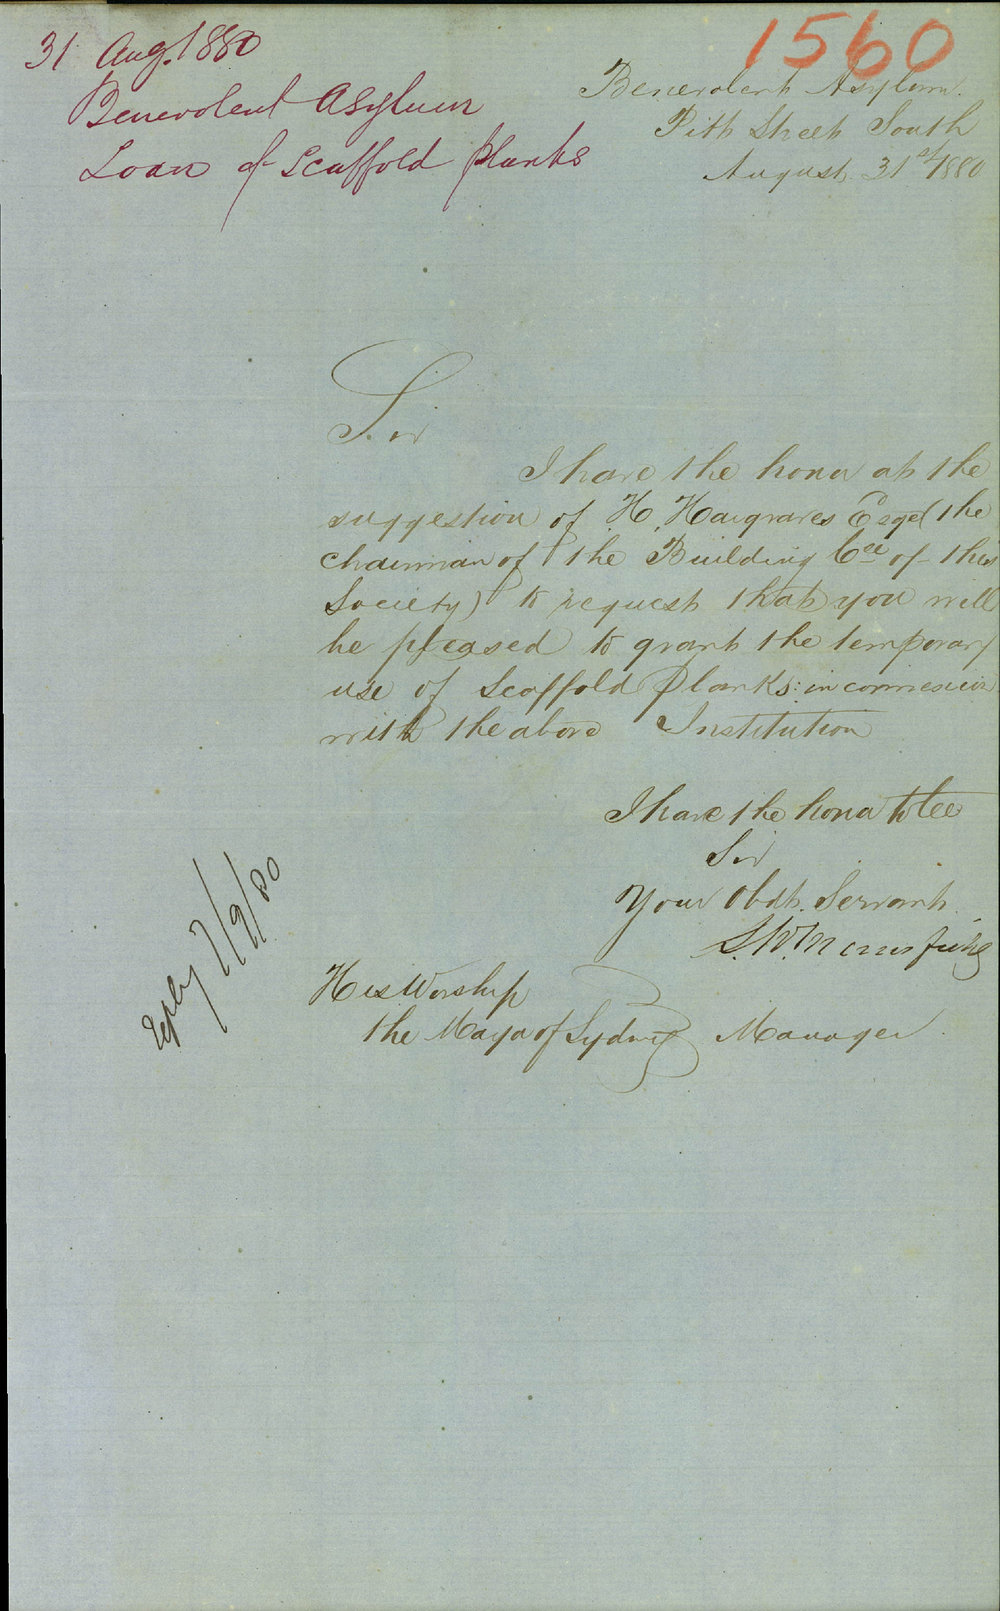 1560
31 Aug. 1880
Benevolent Asylum
Loan of Scaffold Planks
Benevolent Asylum.
Pitt Street South
August 31st/1880
Sir
I have the honor at the
suggestion of H. Hargraves Esqe (the
chairman of the Building Cee of this
Society) to request that you will
be pleased to grant the temporary
use of Scaffold Planks: in connexion
with the above Institution
I have the honor to bee
Sir
Your Obdt. Servant.
Manager.
His Worship
the Mayor of Sydney
Reply 7/9/80